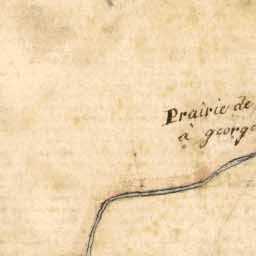 Prairie de
à george